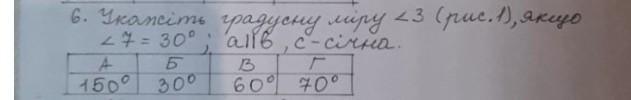 6. Укажіть градусну міру ∠3 (рис.1), якщо
∠7 = 30°; а||в, с-січна.
А Б В Г
150° 30° 60° 70°